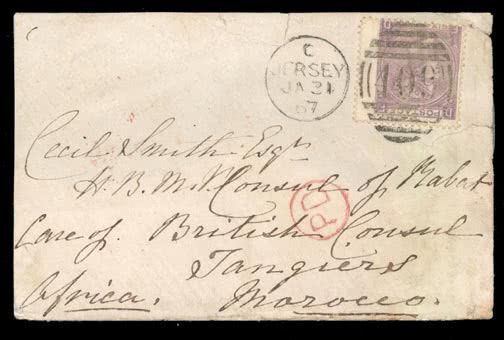 C
JERSEY
JA 31
67
409
Cecil Smith Esqr
H. B. M's Consul of Rabat
PD
Care of British Consul
Tangiers
Africa. Morocco.